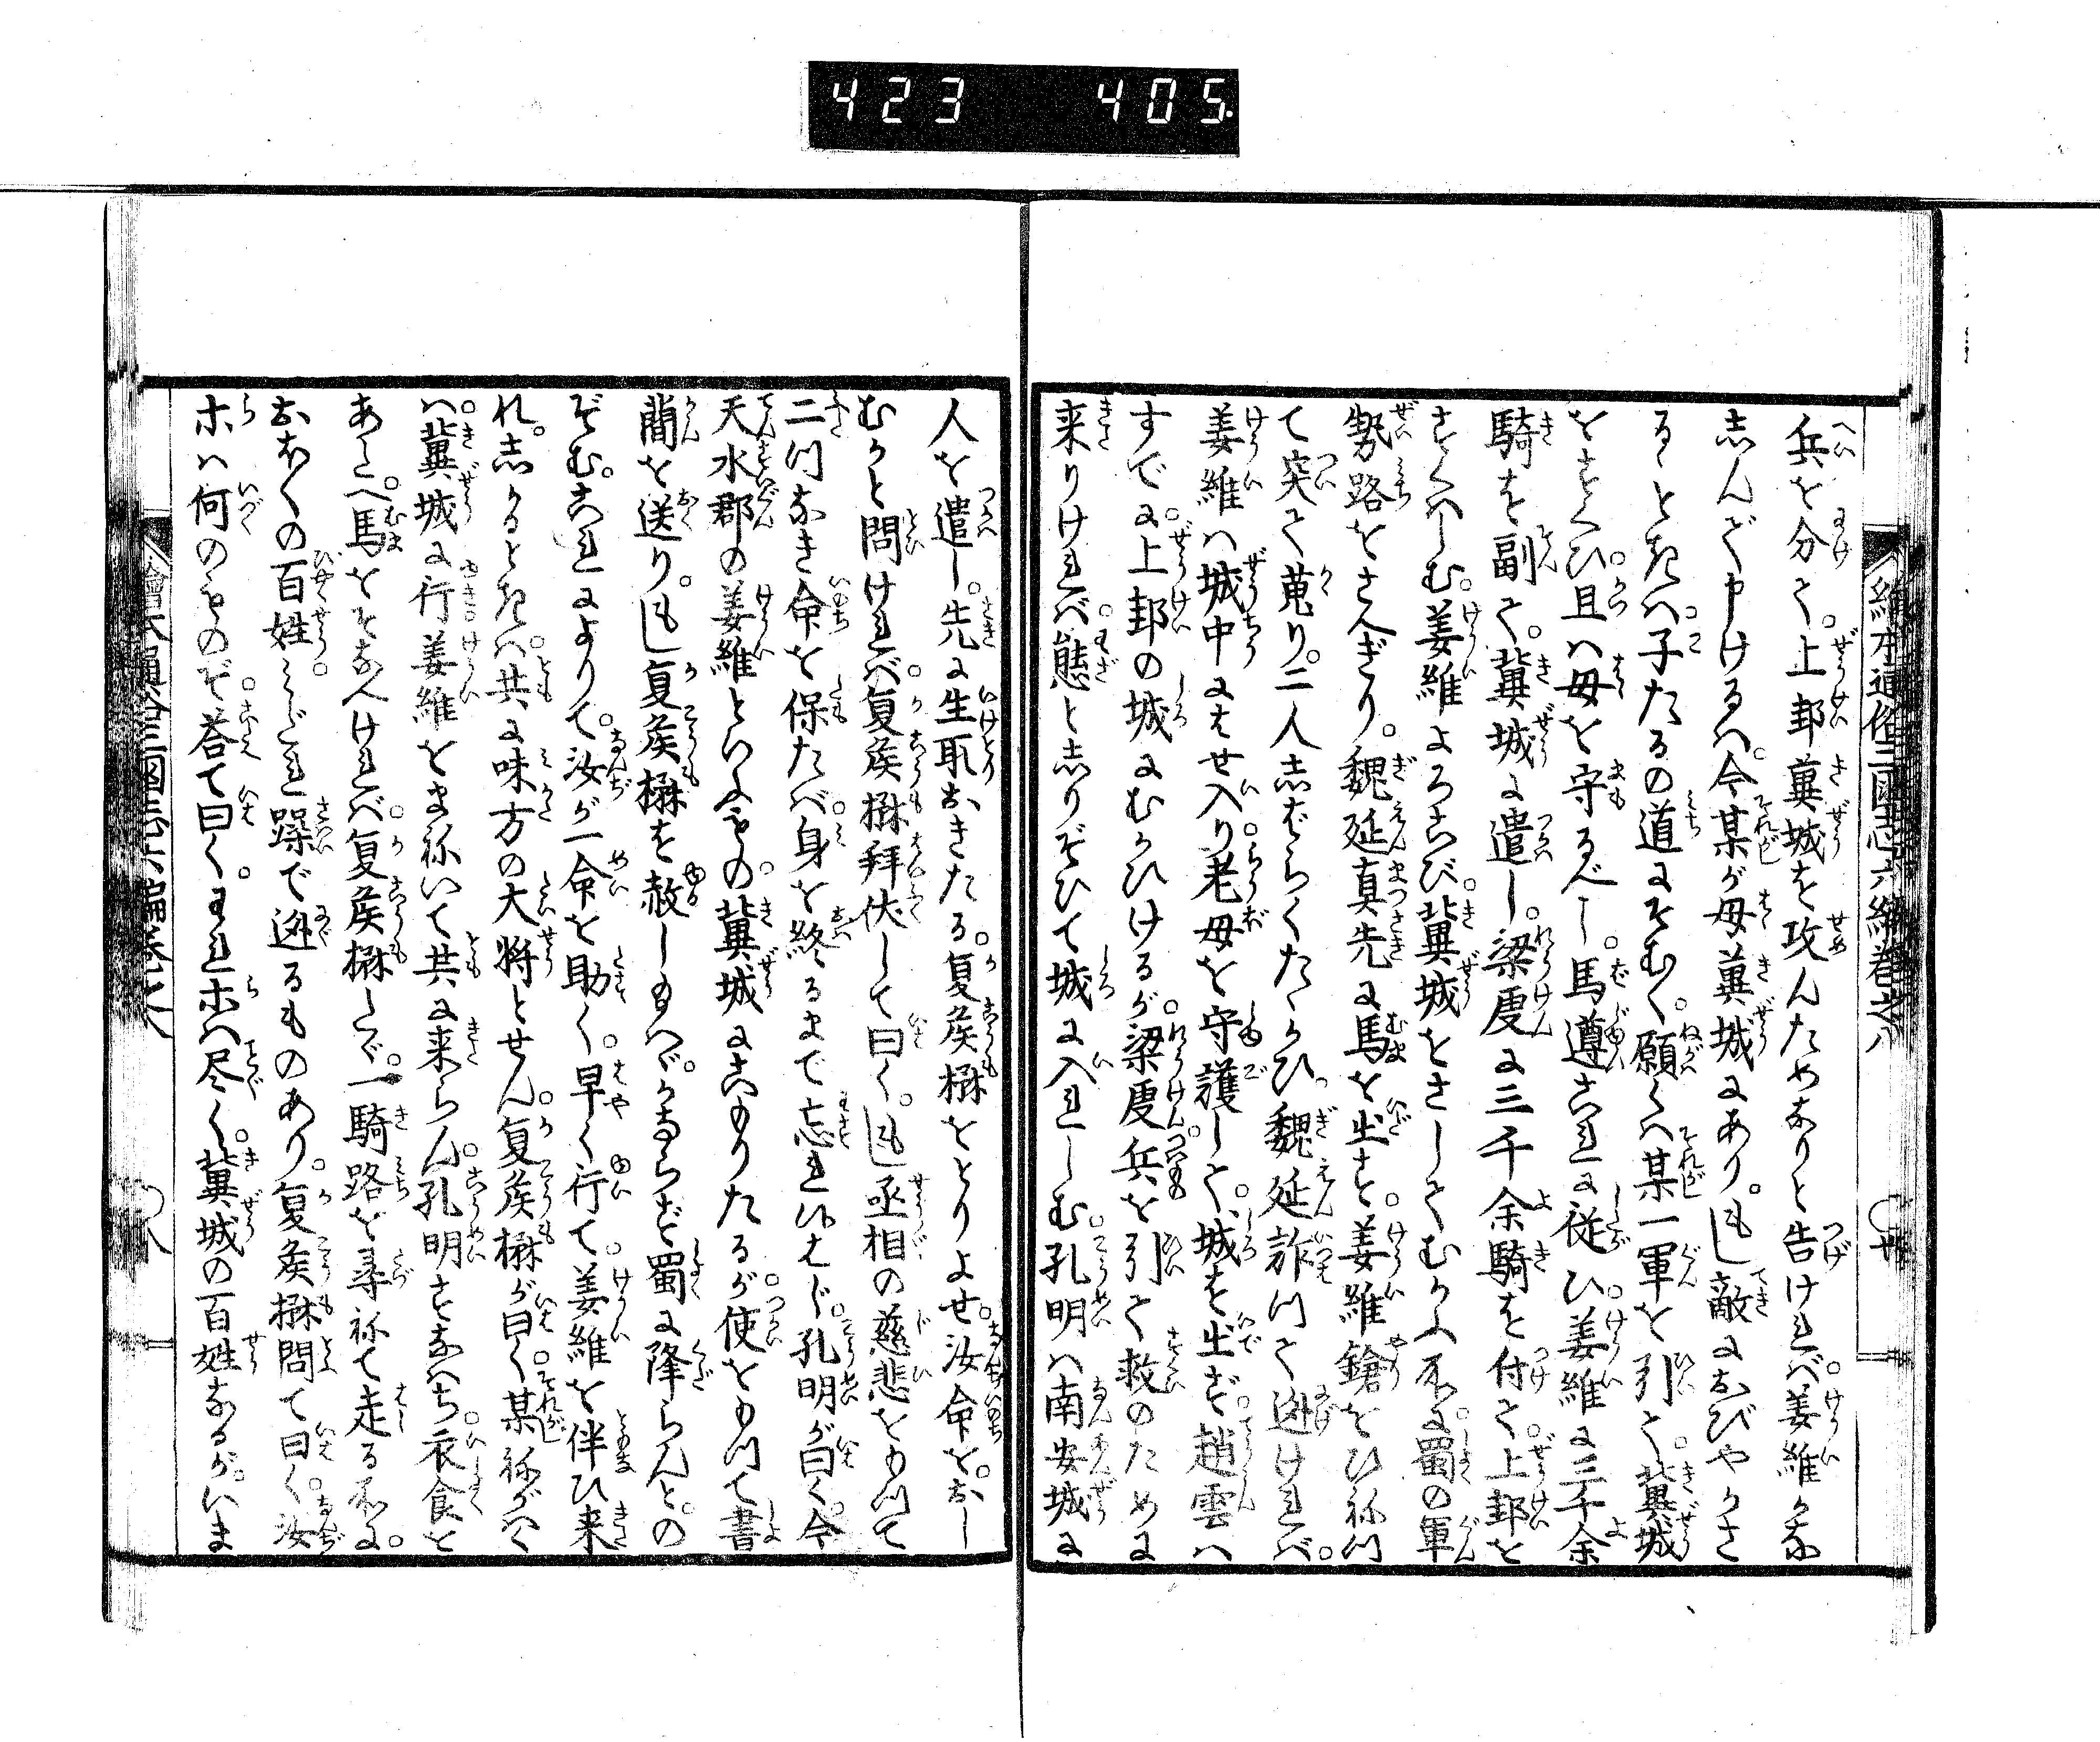 423 405
絵本通俗三国志六編巻之八
兵を分て。上邽冀城を攻んためなりと告ければ。姜維かな
しんで申けるハ。今某が母冀城にあり。もし敵におびやかさ
るゝときハ。子たるの道にそむく。願くハ某一軍を引て。冀城
をすくひ。且ハ母を守るべし。馬遵これに従ひ。姜維に三千余
騎を副て。冀城に遣し。梁虔に三千余騎を付て。上邽を
すくハしむ。姜維よろこび。冀城をさしてむかふ所に。蜀の軍
勢路をさへぎり。魏延真先に馬を出す。姜維鎗をひねつ
て突て蒐り。二人しばらくたゝかひ。魏延詐つて逃ければ。
姜維ハ城中にはせ入り。老母を守護して。城を出ず。趙雲ハ
すでに。上邽の城にむかひけるが。梁虔兵を引て救のために
来りければ。態としりぞひて城に入れしむ。孔明ハ南安城に
人を遣し。先に生取おきたる。夏侯楙をとりよせ。汝命を。おし
むかと問ければ。夏侯楙拜伏して曰く。もし丞相の慈悲をもつて
二つなき命を保たば。身を終るまで忘れ候はじ。孔明が曰く。今
天水郡の姜維といふもの。冀城にこもりたるが。使をもつて書
簡を送り。もし夏侯楙を赦し給へば。かならず蜀に降らんと。の
ぞむ。これによりて。汝が一命を助く。早く行て。姜維を伴ひ来
れ。しかるときハ。共に味方の大将とせん。夏侯楙が曰く。某ねがハく
ハ。冀城に行。姜維をまねいて共に来らん。孔明すなハち。衣食を
あたへ。馬をそなへければ。夏侯楙たゞ。一騎路を尋ねて走る所に。
おほくの百姓。みだれ躁で逃るものあり。夏侯楙問て曰く。汝
ホハ何のものぞ。荅て曰く。われホハ尽く。冀城の百姓なるが。いま